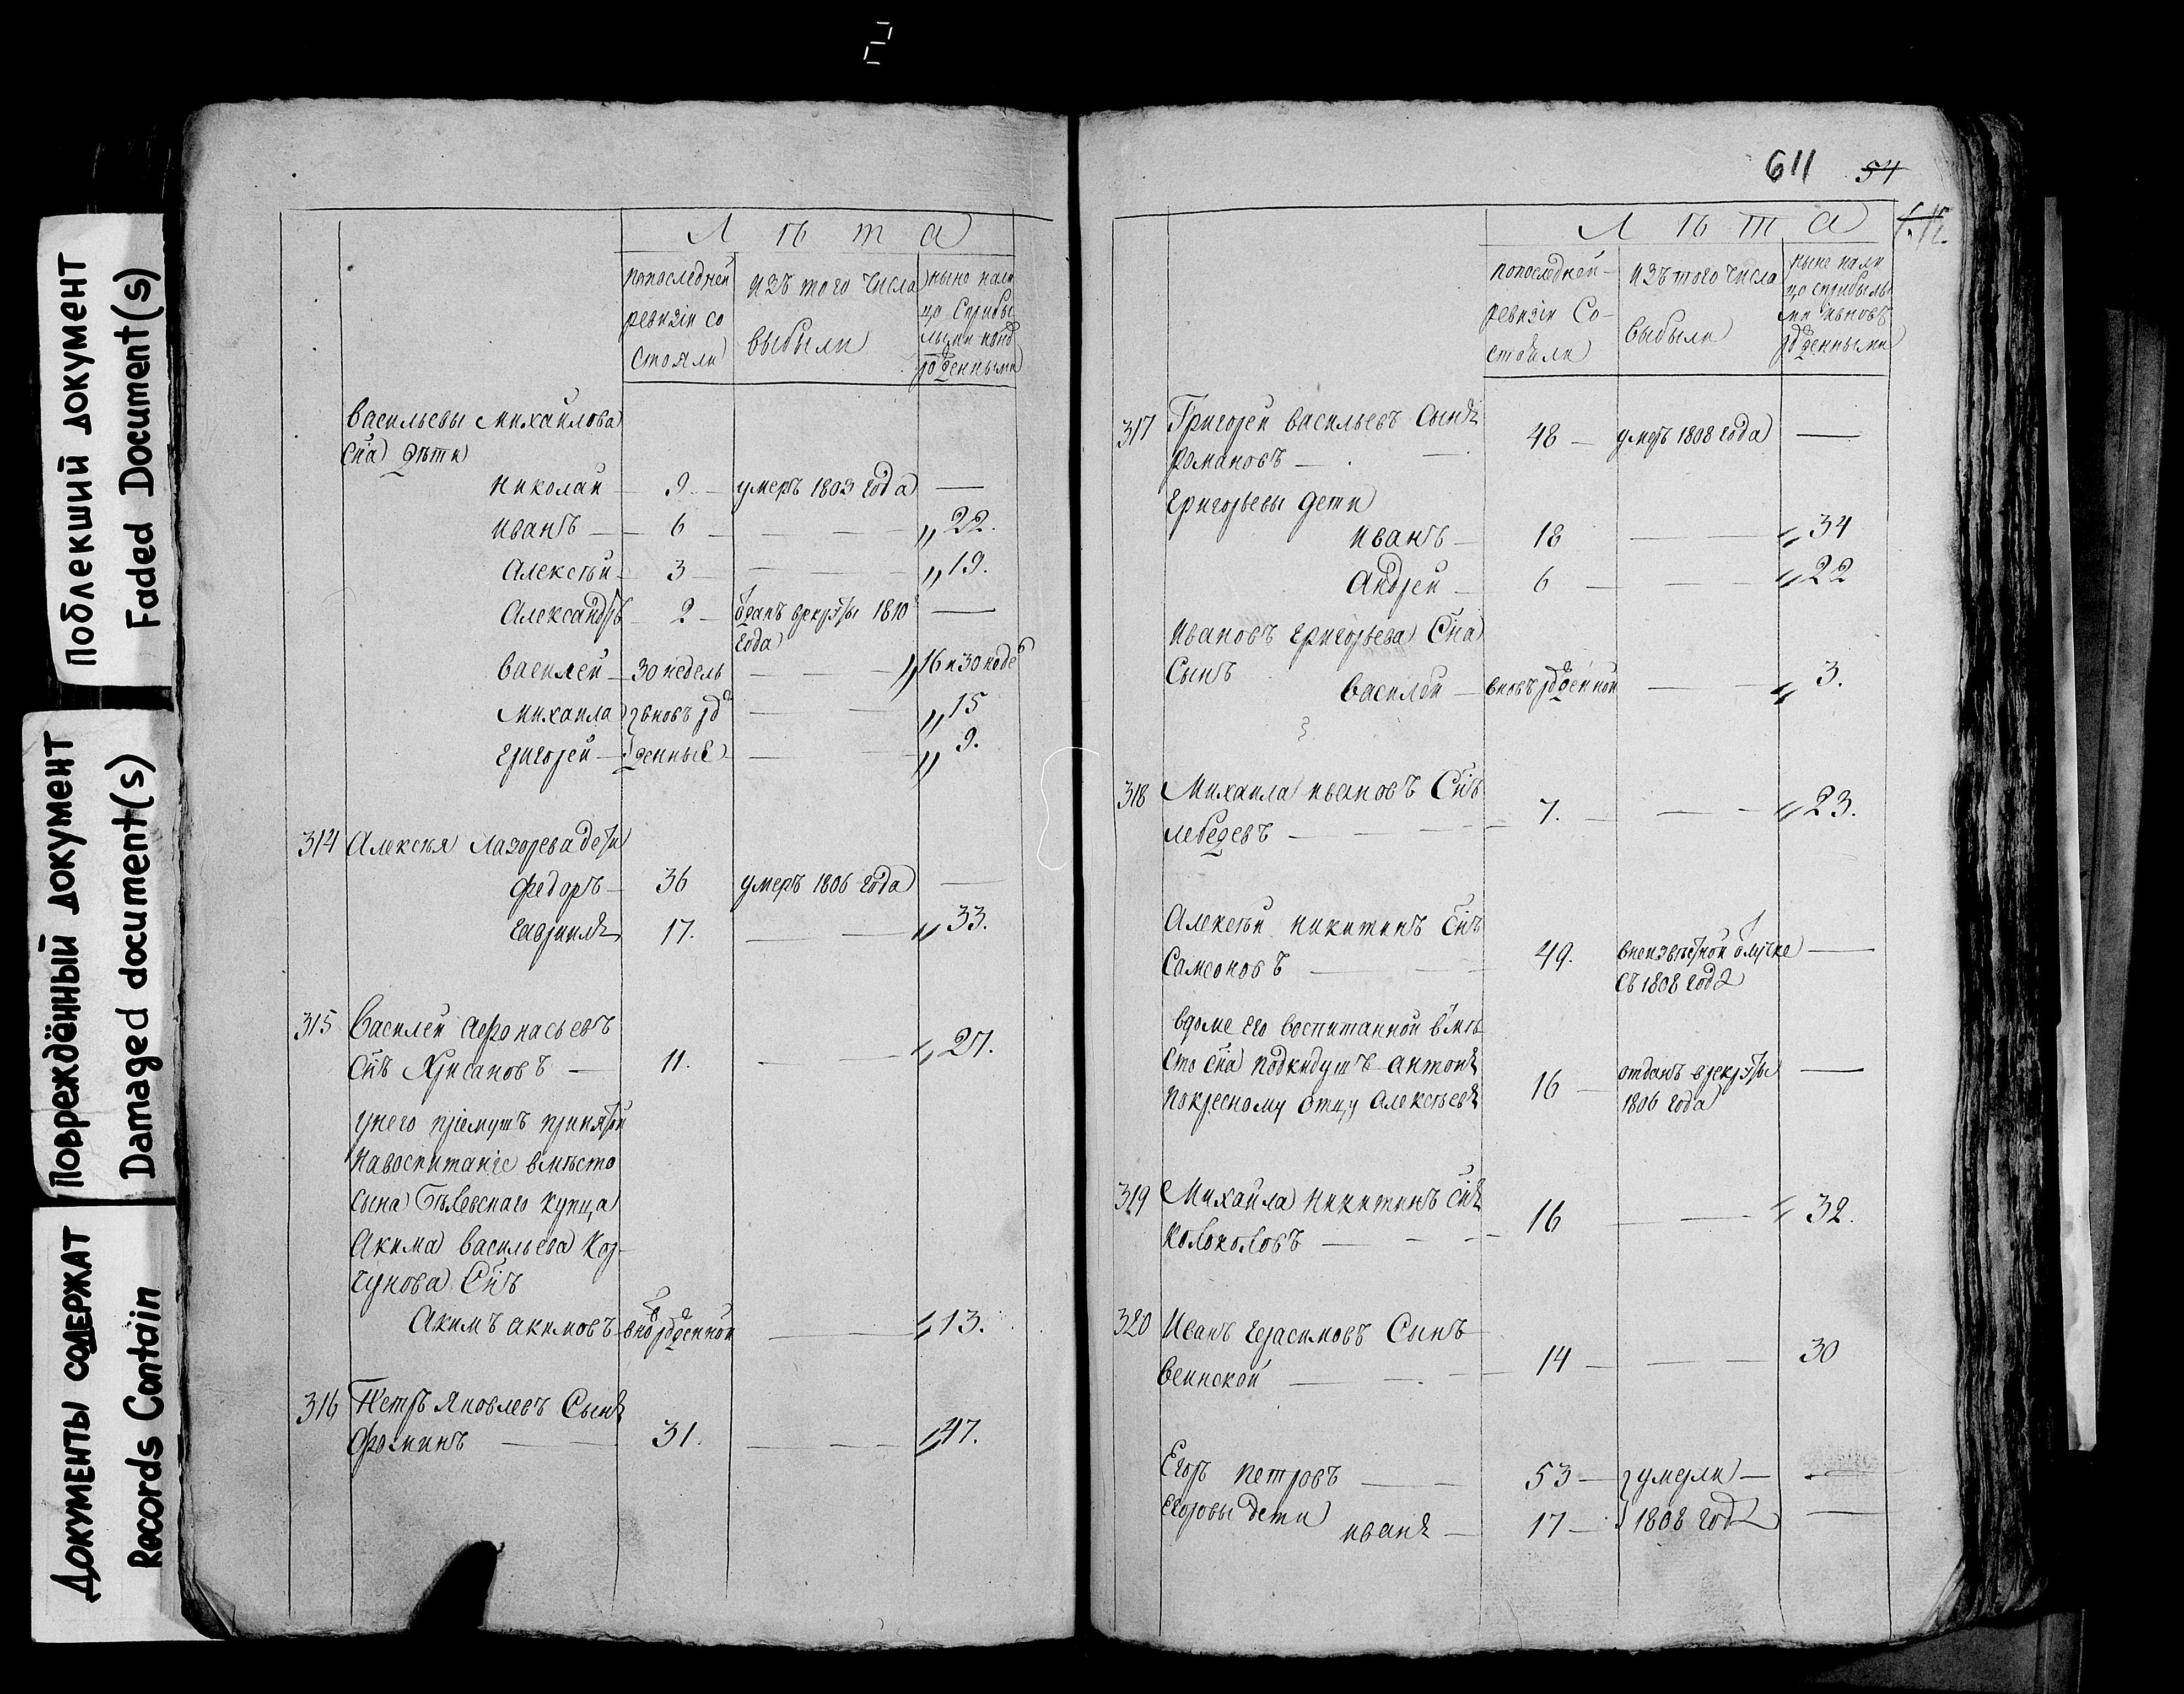 2
Поблекший документ
Faded Document(s)
Повреждённый документ
Damaged document(s)
Документы содержат
Records Contain
Лѣта
попоследней ревизiи состояли
изъ того числа выбыли
ныне нали
цо сприбы
лыми
Васильевы Михайлова
сна дѣти
николай 9. умеръ 1803 года —
иванъ 6 — „ 22.
Алексѣй 3 — „ 19.
Александръ 2 отданъ врекруты 1810
года —
василей 30 недель — „ 16 и 30 неде
Михаила вновь рож „ 15
григорей денные „ 9.
314 Алексѣя Лазорева дети
федоръ 36 умеръ 1806 года —
гаврила 17. — „ 33.
315 Василей афонасьевъ
снъ Хрисановъ — 11. — „ 27.
унего прiемушъ принятой
навоспитанiе вместо
сына бѣлевскаго купца
Акима васильева Кор-
чунова снъ
Акимъ акимовъ вно рожденной — „ 13.
316 Петръ Яковлевъ Сынъ
фроминъ — 31. — „ 47.
611 54
Лѣта
попоследней ревизiи состояли
изъ того числа выбыли
ныне нали
цо сприбылы
ми ивновь
рожденными
317 Григорей васильевъ сынъ
романовъ — 48 — умеръ 1808 года —
григорьевы дети
иванъ — 18 — „ 34
андрей — 6 — „ 22
ивановъ григорьева Сна
Сынъ
василей — вновь рожденной — „ 3.
318 Михаила ивановъ Снъ
лебедевъ — 7. — „ 23.
Алексѣй никитинъ Снъ
Самсоновъ — 49. внеизвѣстной отлучке
съ 1808 года —
вдоме его воспитанной вмѣ
сто сна подкидушъ антонъ
покресному отцу алексѣевъ 16 — отданъ врекруты
1806 года —
319 Михайла никитинъ снъ
колоколовъ — 16 — „ 32.
320 Иванъ герасимовъ Сынъ
венской — 14 — 30
Егоръ петровъ — 53 — умерли —
егоровы дети иванъ — 17 — 1808 года —